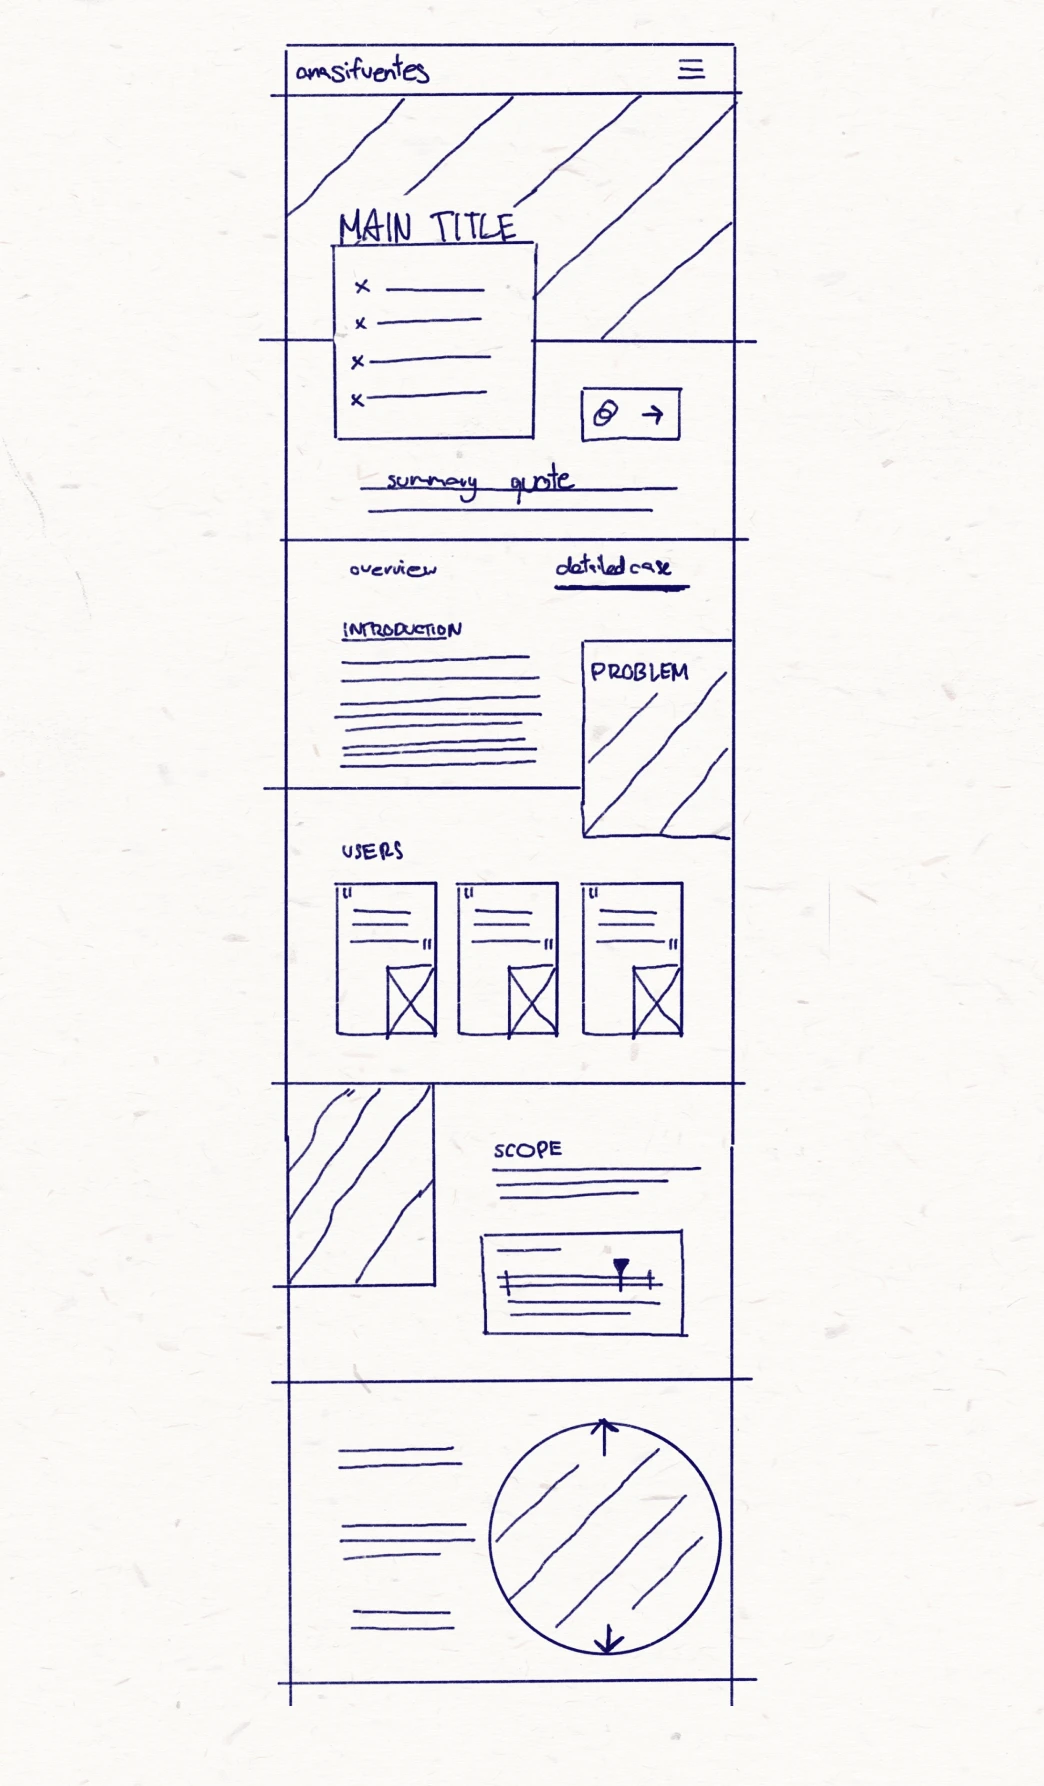 anasifuentes
MAIN TITLE
x
x
x
x
summary quote
overview
detailed case
INTRODUCTION
PROBLEM
USERS
" "
" "
" "
SCOPE